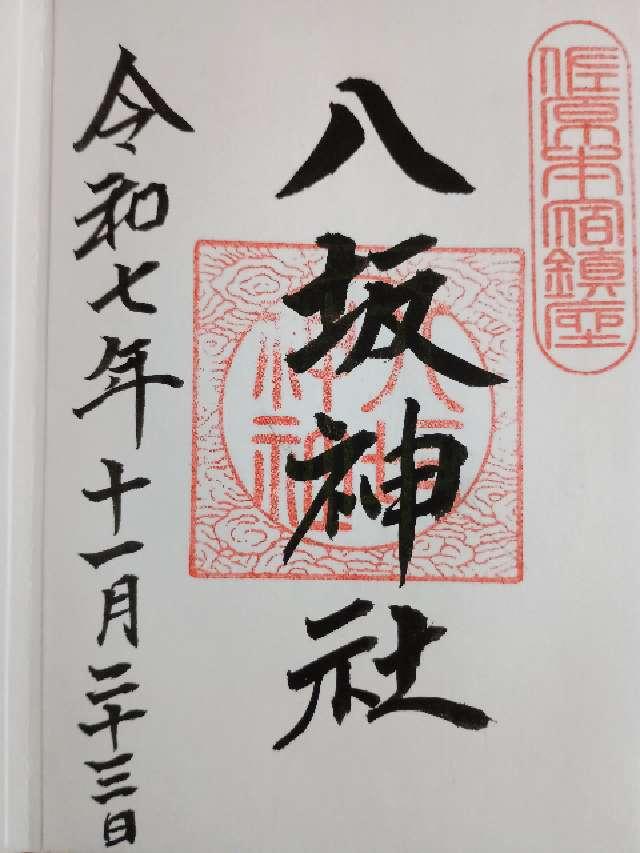 佐原本宿鎮座
八坂神社
八坂神社
令和七年十一月二十三日